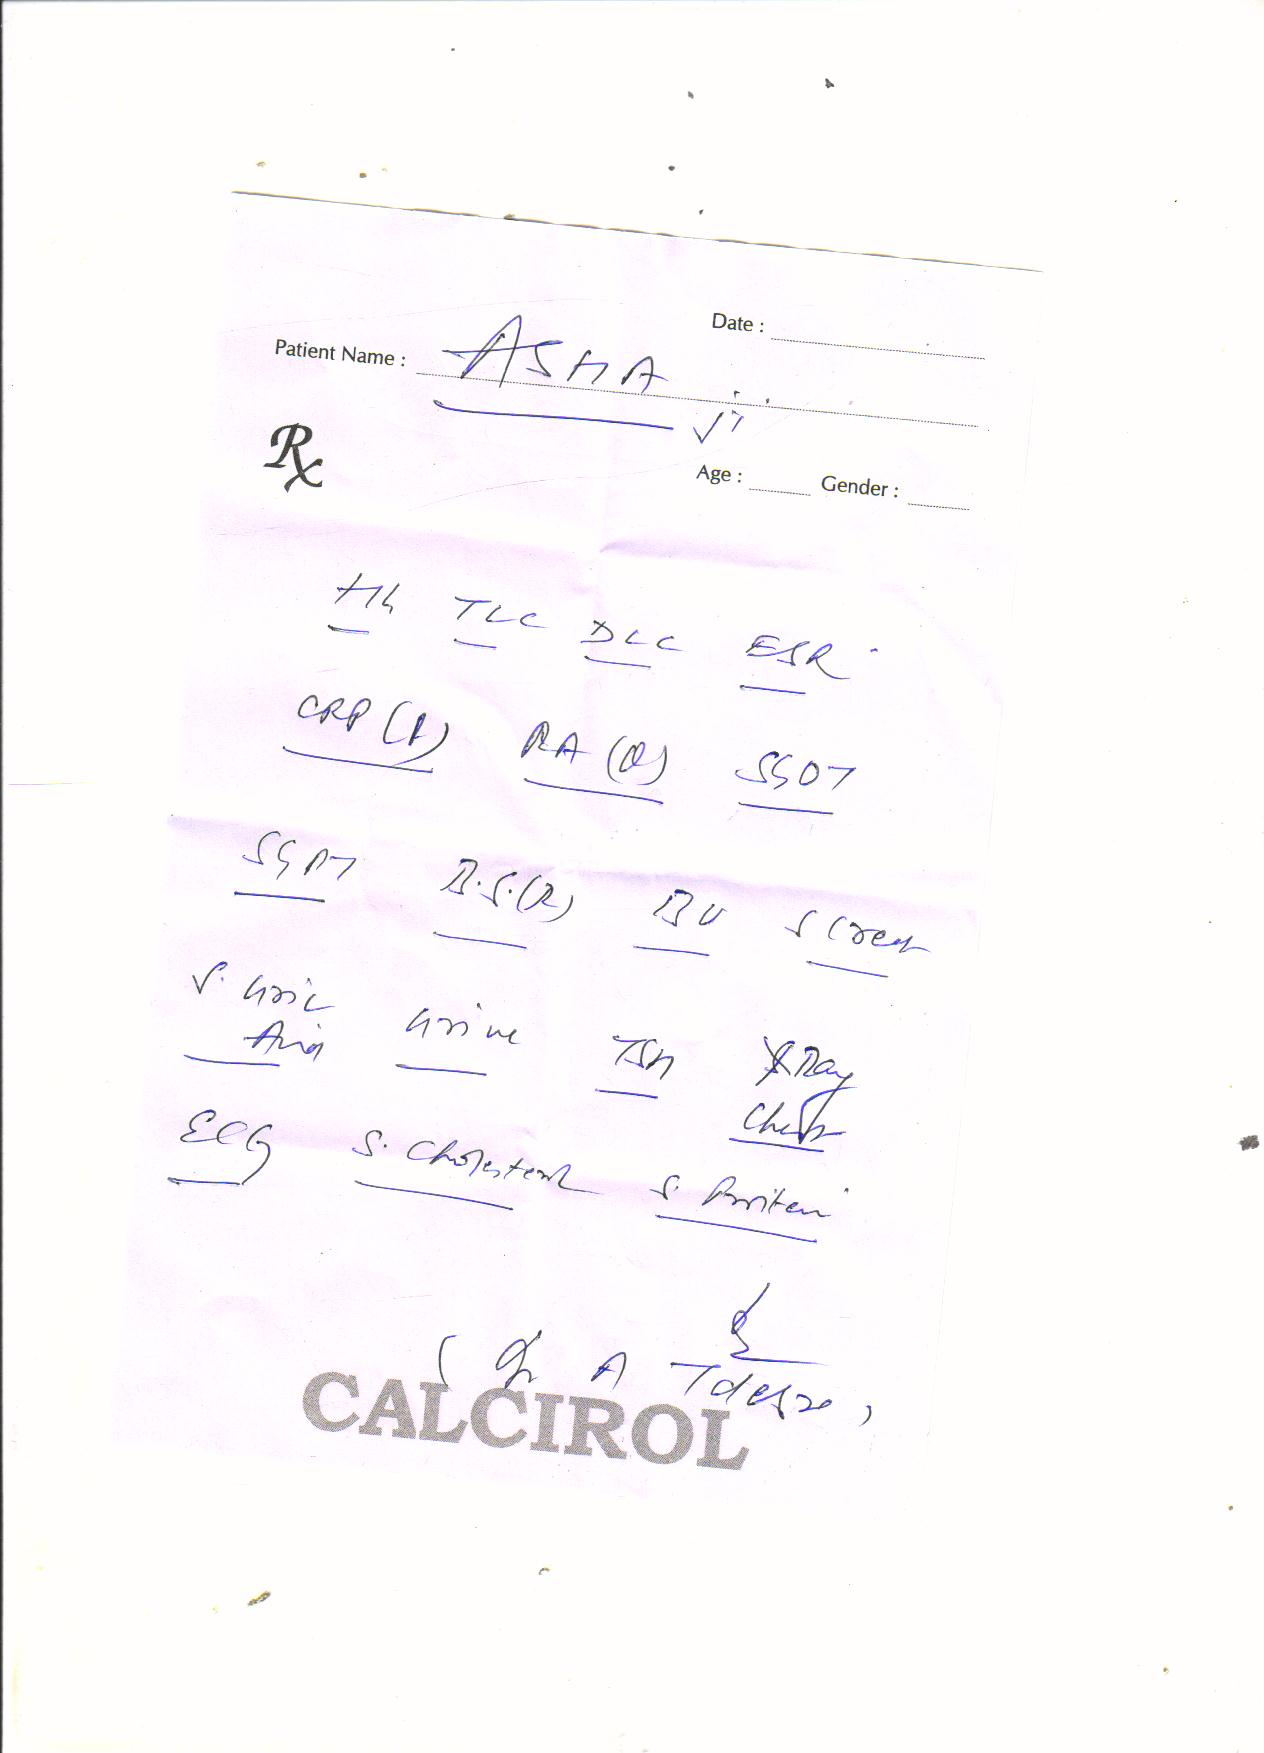 Date :
Patient Name : ASHA
Rx
Age : Gender :
Hb TLC DLC ESR
CRP (Q) RA (Q) SGOT
SGPT B.S.(R) BU S Creat
S. Uric Urine TSH X Ray
Acid Chest
ECG S. Cholesterol S. Protein
CALCIROL